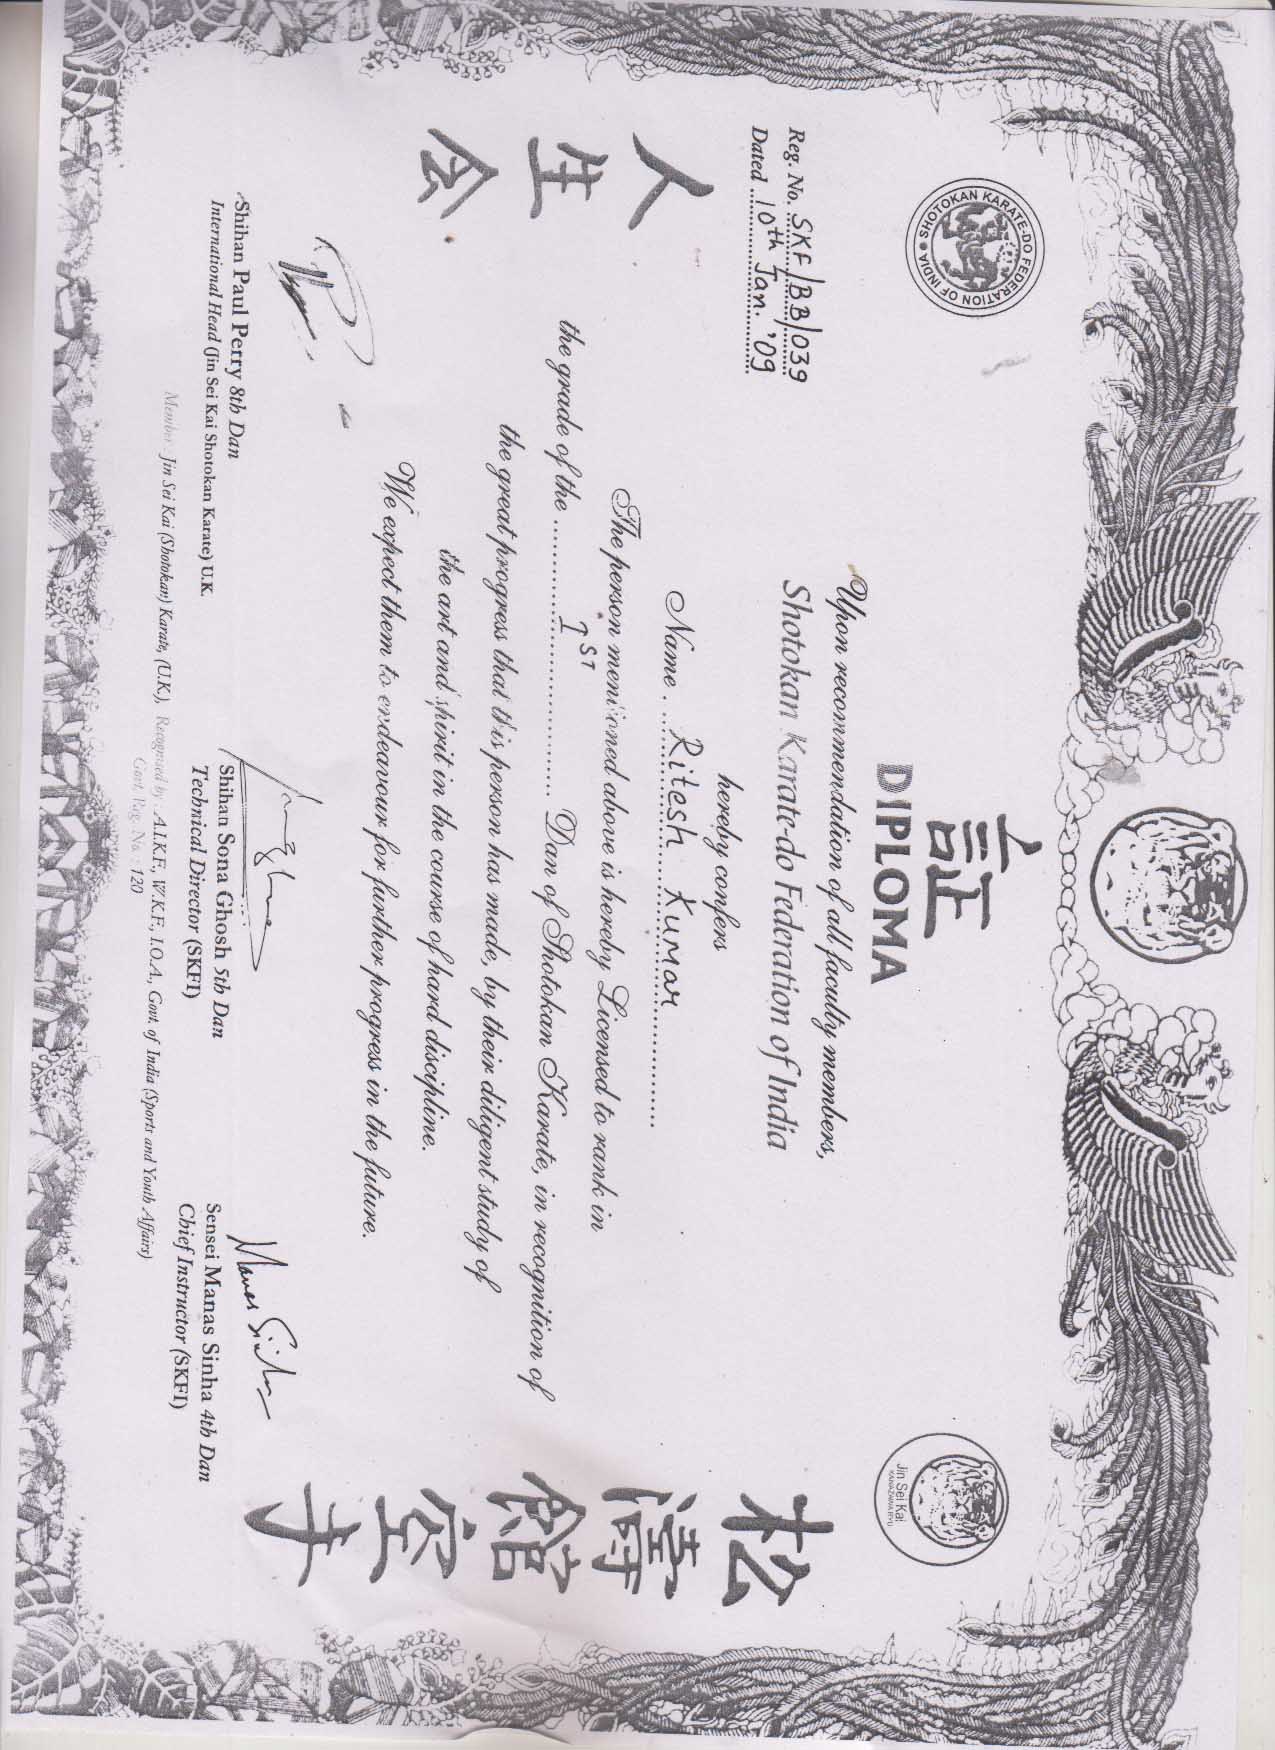 SHOTOKAN KARATE-DO FEDERATION OF INDIA
証
DIPLOMA
Jin Sei Kai
KANAZWA RYU
Upon recommendation of all faculty members,
Shotokan Karate-do Federation of India
Reg. No. SKF/BB/039
Dated 10th Jan. '09
hereby confers
Name Ritesh Kumar
The person mentioned above is hereby Licensed to rank in
the grade of the 1ST Dan of Shotokan Karate, in recognition of
the great progress that this person has made, by their diligent study of
the art and spirit in the course of hard discipline.
We expect them to endeavour for further progress in the future.
人生会
松濤館空手
Manas Sinha
Shihan Paul Perry 8th Dan
International Head (Jin Sei Kai Shotokan Karate) U.K.
Shihan Sona Ghosh 5th Dan
Technical Director (SKFI)
Sensei Manas Sinha 4th Dan
Chief Instructor (SKFI)
Member : Jin Sei Kai (Shotokan) Karate, (U.K.), Recognised by : A.I.K.F., W.K.F., I.O.A., Govt. of India (Sports and Youth Affairs)
Govt. Reg. No. : 120